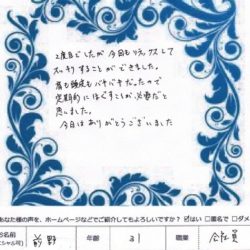 2度目でしたが今回もリラックスして
スッキリすることができました。
肩も頭皮もバキバキだったので
定期的にほぐすことが必要だと
思いました。
今日はありがとうございました
あなた様の声を、ホームページなどでご紹介してもよろしいですか? ☑はい □匿名で □ダメ
お名前 前野 年齢 31 職業 会社員
(イニシャル可)